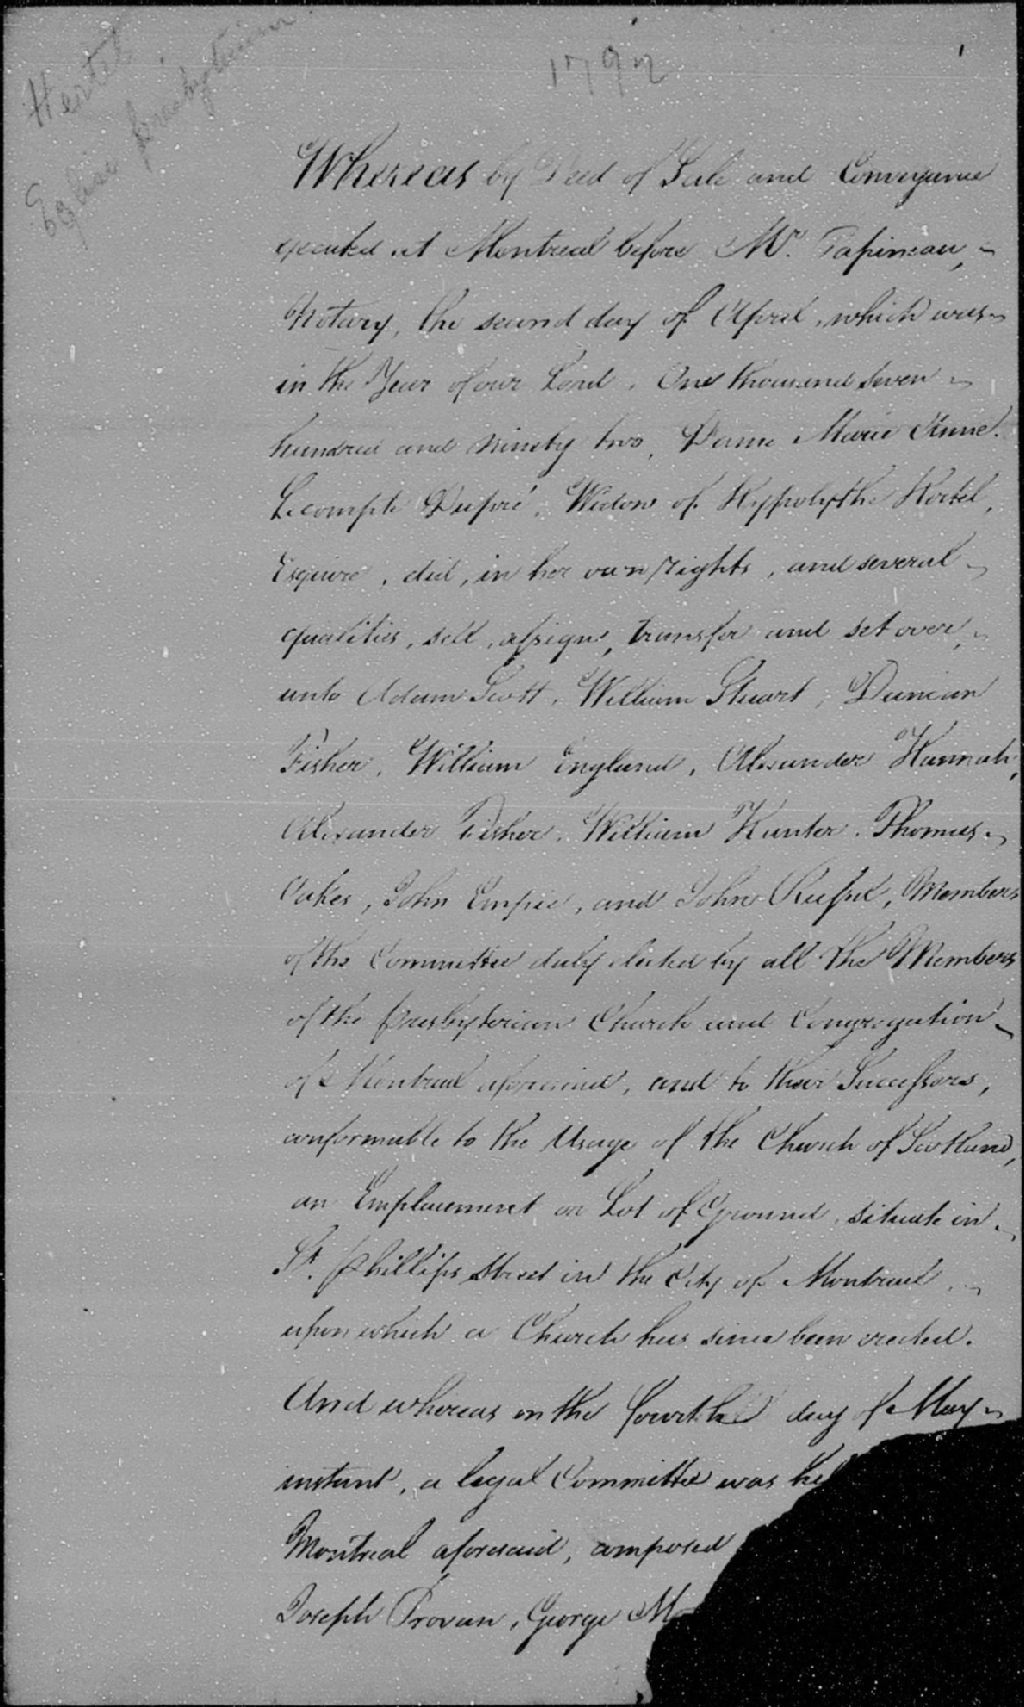 Hertel
Eglise presbyterien
1792
1
Whereas by Deed of Sale and Conveyance
executed at Montreal before Mr. Papineau,
Notary, the second day of April, which was
in the Year of our Lord, One thousand seven
hundred and ninety two, Dame Marie Anne
Lecompte Dupré, Widow of Hyppolythe Hertel,
Esquire, did, in her own rights, and several
qualities, sell, assign, transfer and set over,
unto Adam Scott, William Stuart, Duncan
Fisher, William England, Alexander Hannah,
Alexander Fisher, William Hunter, Thomas
Oakes, John Empie, and John Russel, Members
of the Committee duly elected by all the Members
of the presbyterian Church and Congregation
of Montreal aforesaid, and to their Successors,
conformable to the Usage of the Church of Scotland,
an Emplacement or Lot of Ground, situate in
St. Phillips Street in the City of Montreal
upon which a Church has since been erected.
And whereas on the fourth day of May
instant, a legal Committee was
Montreal aforesaid, composed
Joseph Provan, George